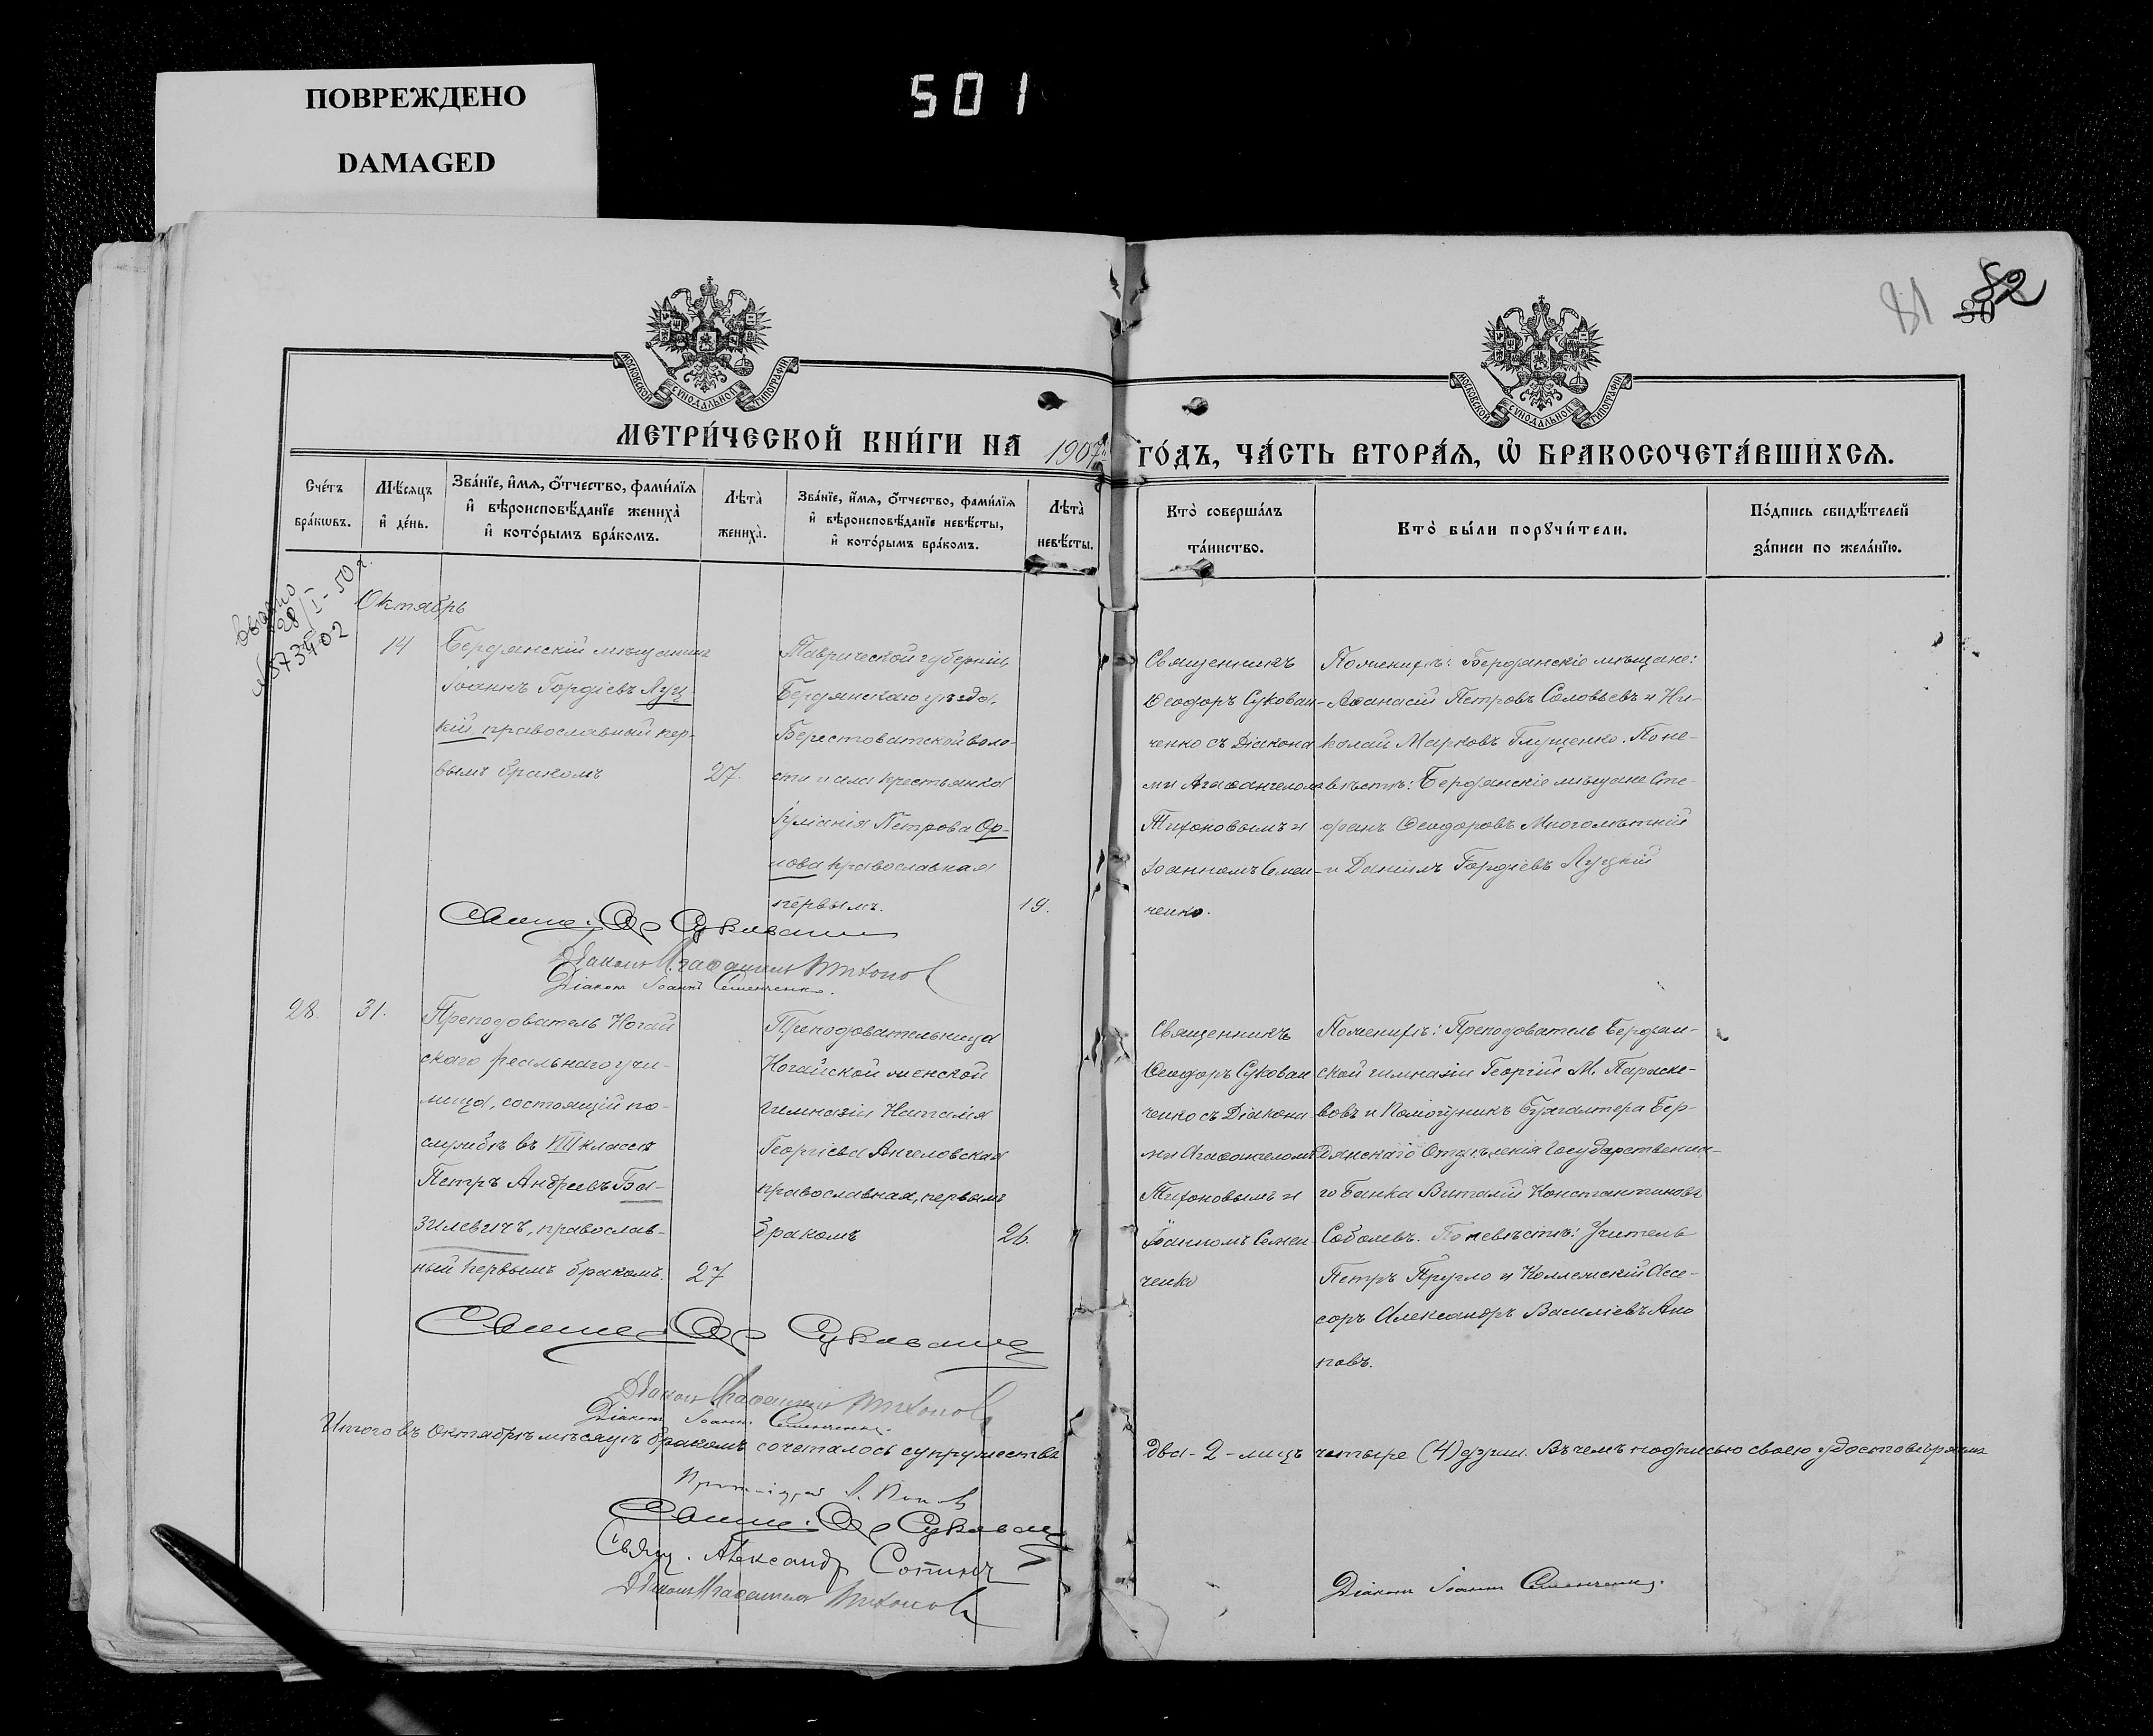 ПОВРЕЖДЕНО
DAMAGED
501
81
82
80
МОСКОВСКОЙ СУНОДАЛЬНОЙ ТИПОГРАФІИ
МОСКОВСКОЙ СУНОДАЛЬНОЙ ТИПОГРАФІИ
МЕТРИ́ЧЕСКОЙ КНИ́ГИ НА 1907 ГО́ДЪ, ЧА́СТЬ ВТОРА́Я, Ѡ БРАКОСОЧЕТА́ВШИХСЯ.
Сче́тъ
бра́кѡвъ.
Мѣ́сяцъ
и де́нь.
Зва́нїе, и́мя, о́тчество, фами́лїя
и вѣроисповѣ́данїе жениха̀
и кото́рымъ бра́комъ.
Лѣта̀
жениха̀.
Зва́нїе, и́мя, о́тчество, фами́лїя
и вѣроисповѣ́данїе невѣ́сты,
и кото́рымъ бра́комъ.
Лѣта̀
невѣ́сты.
Кто̀ соверша́лъ
та́инство.
Кто̀ бы́ли порꙋчи́тели.
По́дпись свидѣ́телей
за́писи по жела́нїю.
28/I-50 г.
Октябрь
14
Бердянскій мѣщанинъ
Іоаннъ Гордіевъ Луц
кій православный пер-
вымъ бракомъ
27.
Таврической губерніи
Бердянскаго уѣзда,
Берестоватской воло-
сти и села крестьянка
Іуліанія Петрова Ор-
лова православная
первымъ.
19.
Священникъ
Ѳеодоръ Сукован-
ченко съ Діакона
ми Агаѳангеломъ
Тихоновымъ и
Іоанномъ Семен-
ченко.
По женихѣ: Бердянскіе мѣщане:
Аѳанасій Петровъ Соловьевъ и Ни-
колай Марковъ Глущенко. По не-
вѣстѣ: Бердянскіе мѣщане Сте-
фанъ Ѳеодоровъ Многолѣтній
и Даніилъ Гордіевъ Луцкій
Діаконъ Агаѳангелъ Тихоновъ
Діаконъ Іоаннъ Семенченко.
28.
31.
Преподователь Ногай
скаго реальнаго учи-
лища, состоящій по
службѣ въ VIII классѣ
Петръ Андреевъ Ба-
зилевичъ, православ-
ный первымъ бракомъ.
27
Преподовательница
Ногайской женской
гимназіи Наталія
Георгіева Ангеловская
православная, первымъ
бракомъ
26.
Священникъ
Ѳеодоръ Сукован
ченко съ Діакона
ми Агаѳангеломъ
Тихоновымъ и
Іоанномъ Семен-
ченко
По женихѣ: Преподователь Бердян-
ской гимназіи Георгій М. Параске-
вовъ и Помощникъ Бухгалтера Бер-
дянскаго Отдѣленія Государственна-
го Банка Виталій Константиновъ
Соболевъ. По невѣстѣ: Учитель
Петръ и Коллежскій Ассе-
соръ Александръ Василіевъ Ано
повъ.
Діаконъ Агаѳангелъ Тихоновъ
Діаконъ Іоаннъ Семенченко.
Итого въ Октябрѣ мѣсяцѣ бракомъ сочеталось супружества Два - 2 - лицъ четыре (4) души. Въ чемъ подписью своею удостовѣряемъ
Свящ. Александръ
Діаконъ Агаѳангелъ Тихоновъ
Діаконъ Іоаннъ Семенченко.